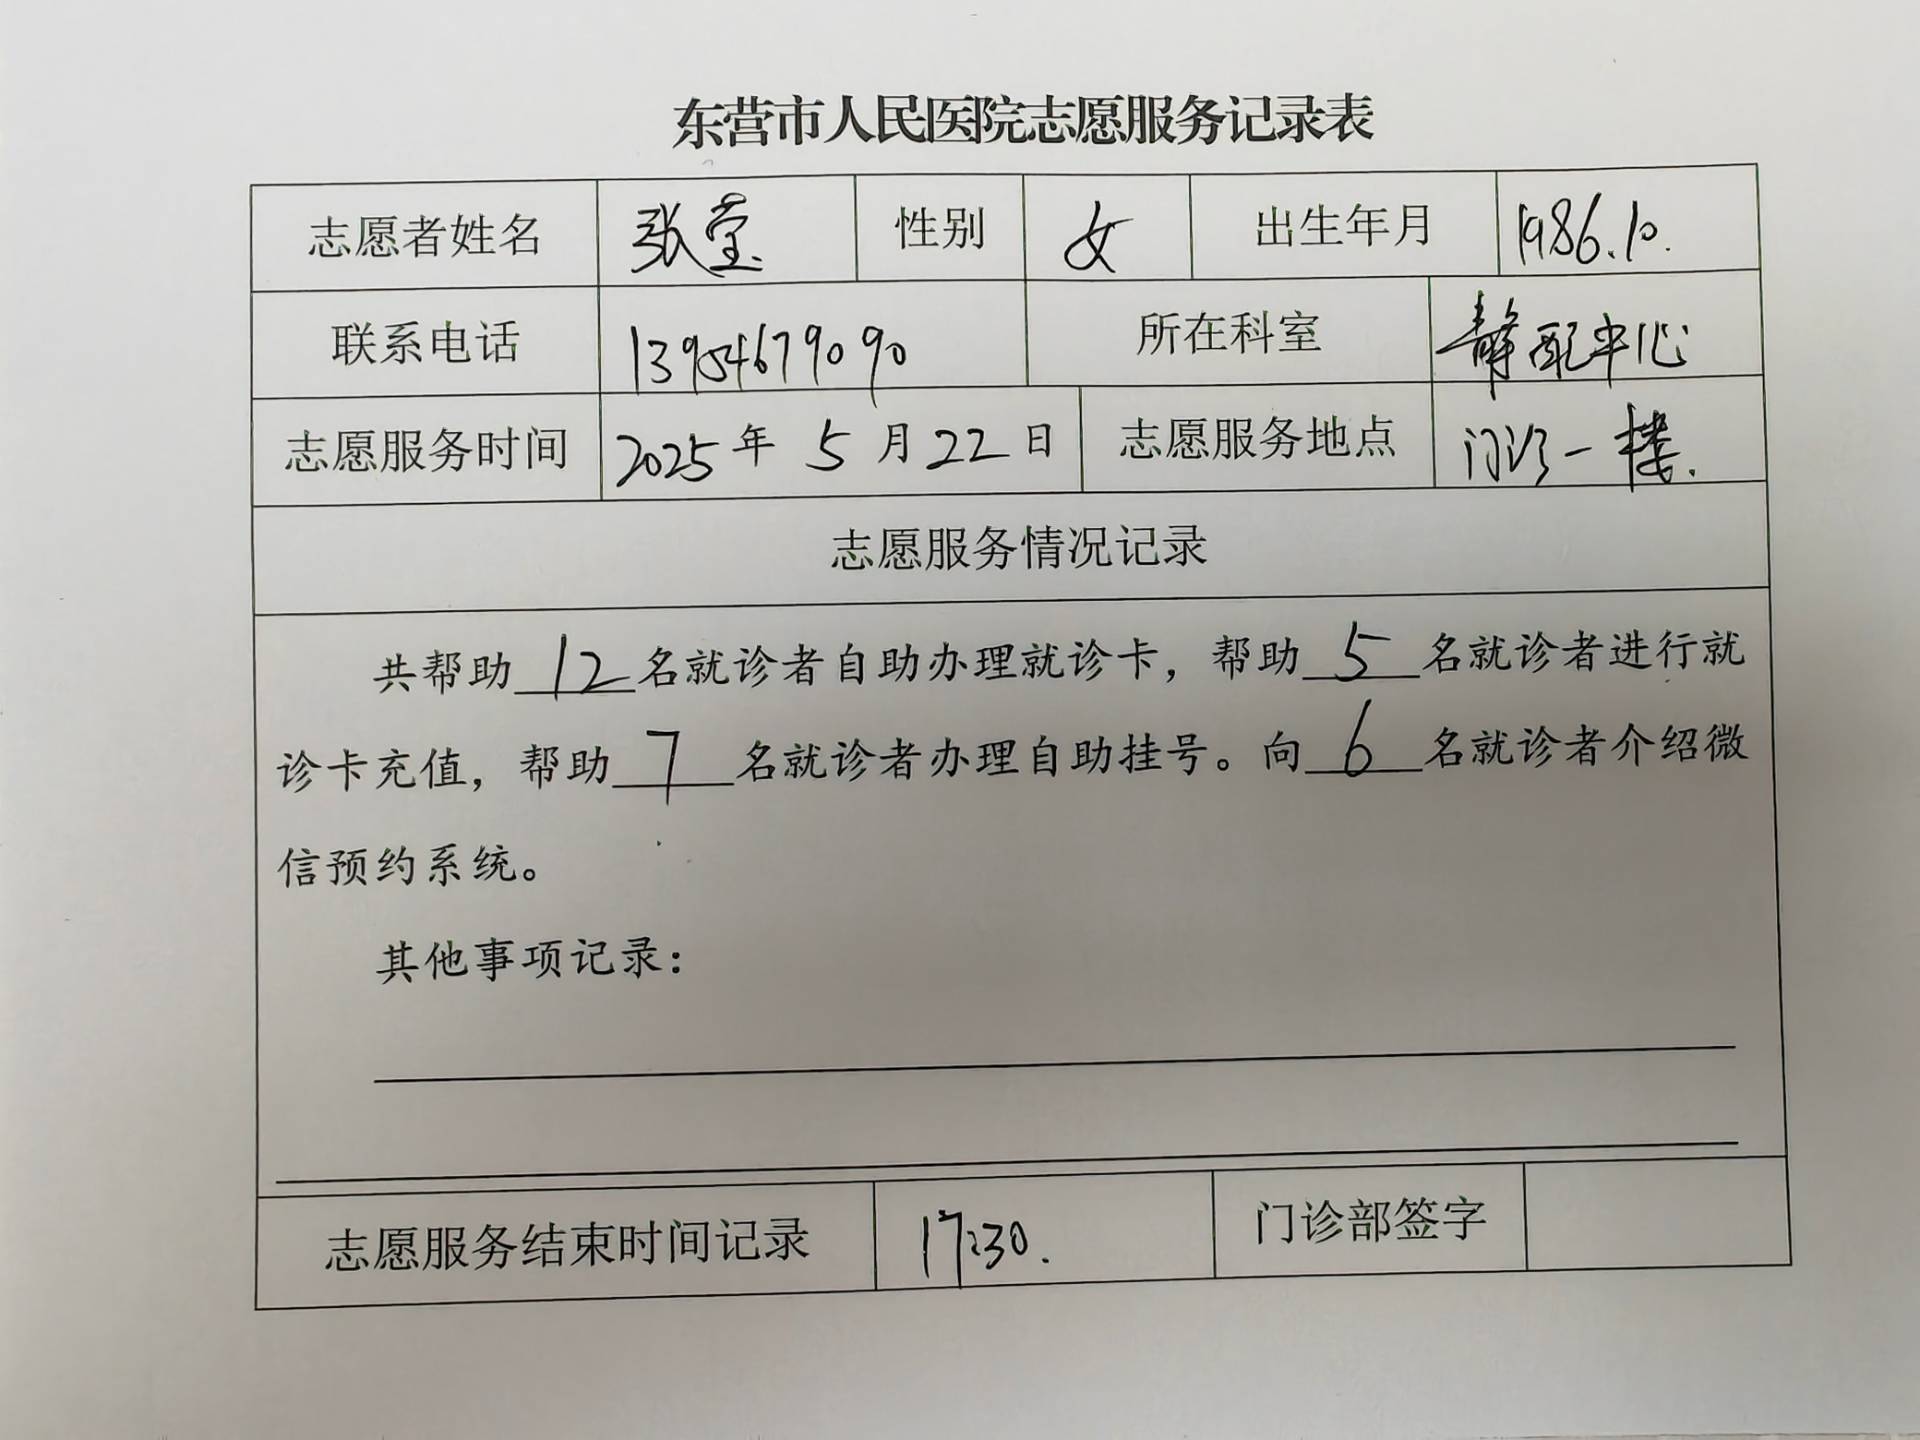 东营市人民医院志愿服务记录表
志愿者姓名 张莹. 性别 女 出生年月 1986.10.
联系电话 13954679090 所在科室 静配中心
志愿服务时间 2025年 5 月 22 日 志愿服务地点 门诊一楼.
志愿服务情况记录
共帮助 12 名就诊者自助办理就诊卡，帮助 5 名就诊者进行就
诊卡充值，帮助 7 名就诊者办理自助挂号。向 6 名就诊者介绍微
信预约系统。
其他事项记录：
志愿服务结束时间记录 17:30. 门诊部签字